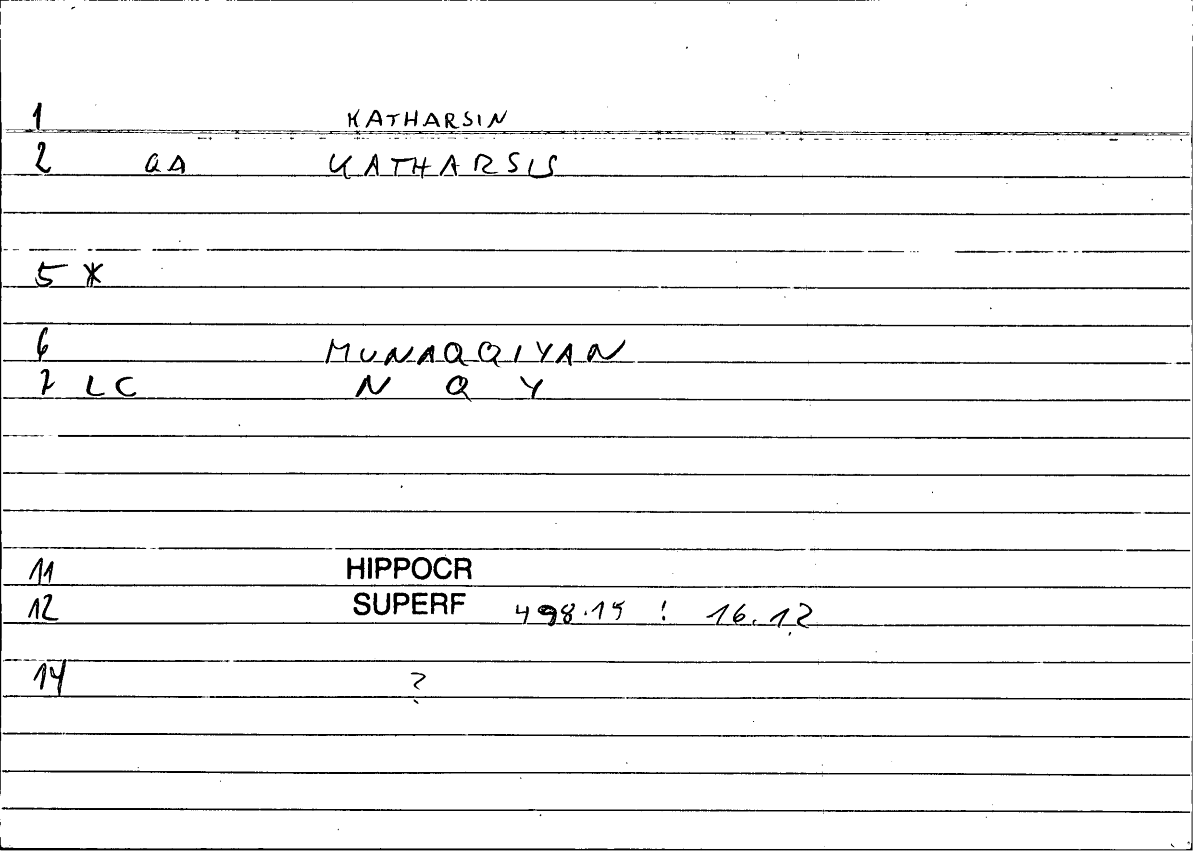 1 KATHARSIN
2 QA KATHARSIS
5 *
6 MUNAQQIYAN
7 LC N Q Y
11 HIPPOCR
12 SUPERF 498.15 : 16.12
14 ?